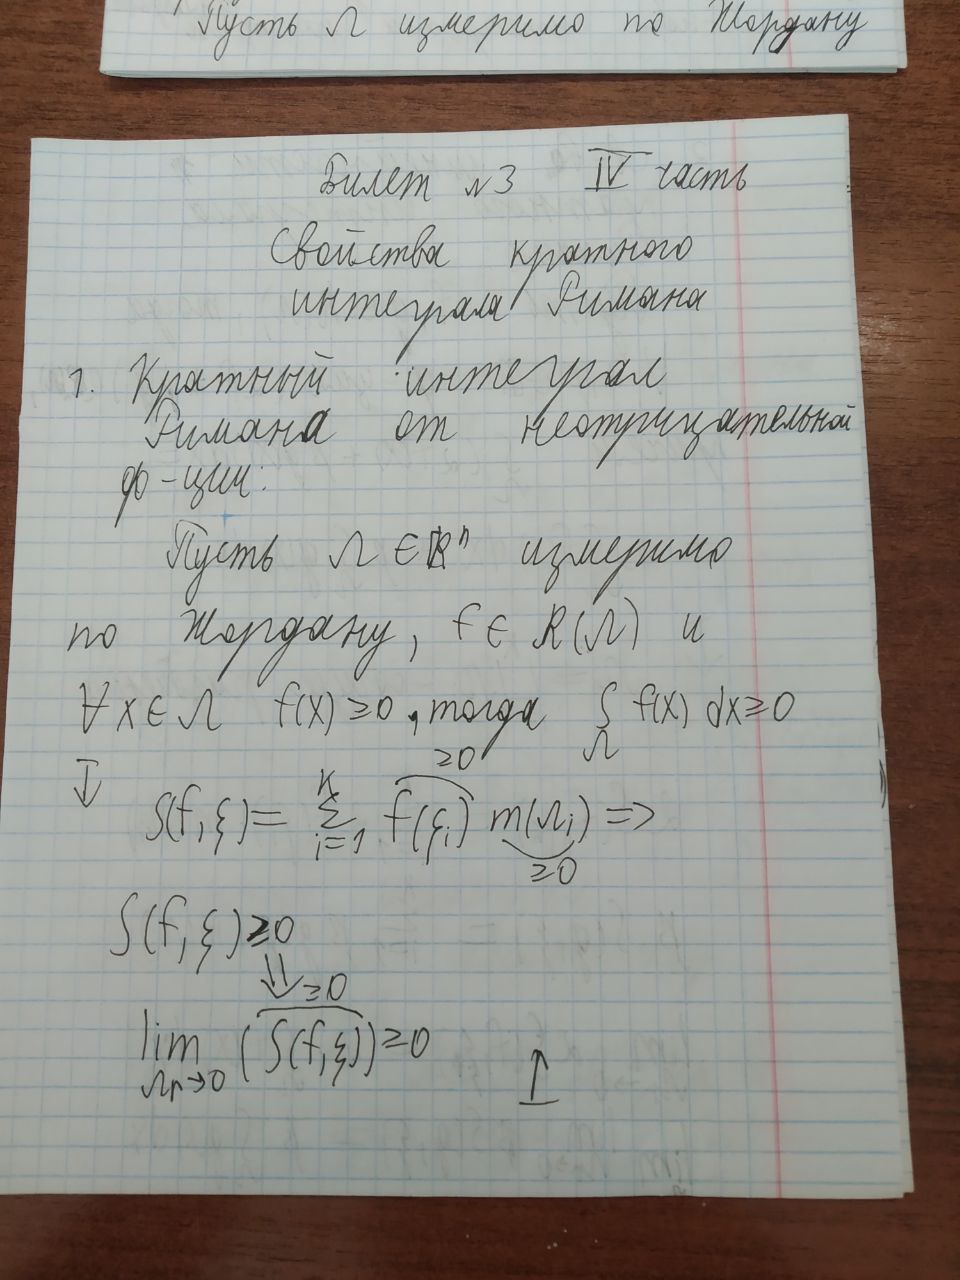 Пусть Λ измеримо по Жордану
Билет №3 IV часть
Свойства кратного
интеграла Римана
1. Кратный интеграл
Римана от неотрицательной
ф-ции:
Пусть Λ ∈ ℝⁿ измеримо
по Жордану, f ∈ R(Λ) и
∀ x ∈ Λ f(x) ≥ 0, тогда ∫_Λ f(x) dx ≥ 0
↓
≥0
S(f, ξ) = ∑_{i=1}^{K} f(ξ_i) m(Λ_i) =>
≥0
S(f, ξ) ≥ 0
⇓ ≥0
lim_{Λ_r→0} (S(f, ξ)) ≥ 0
↑